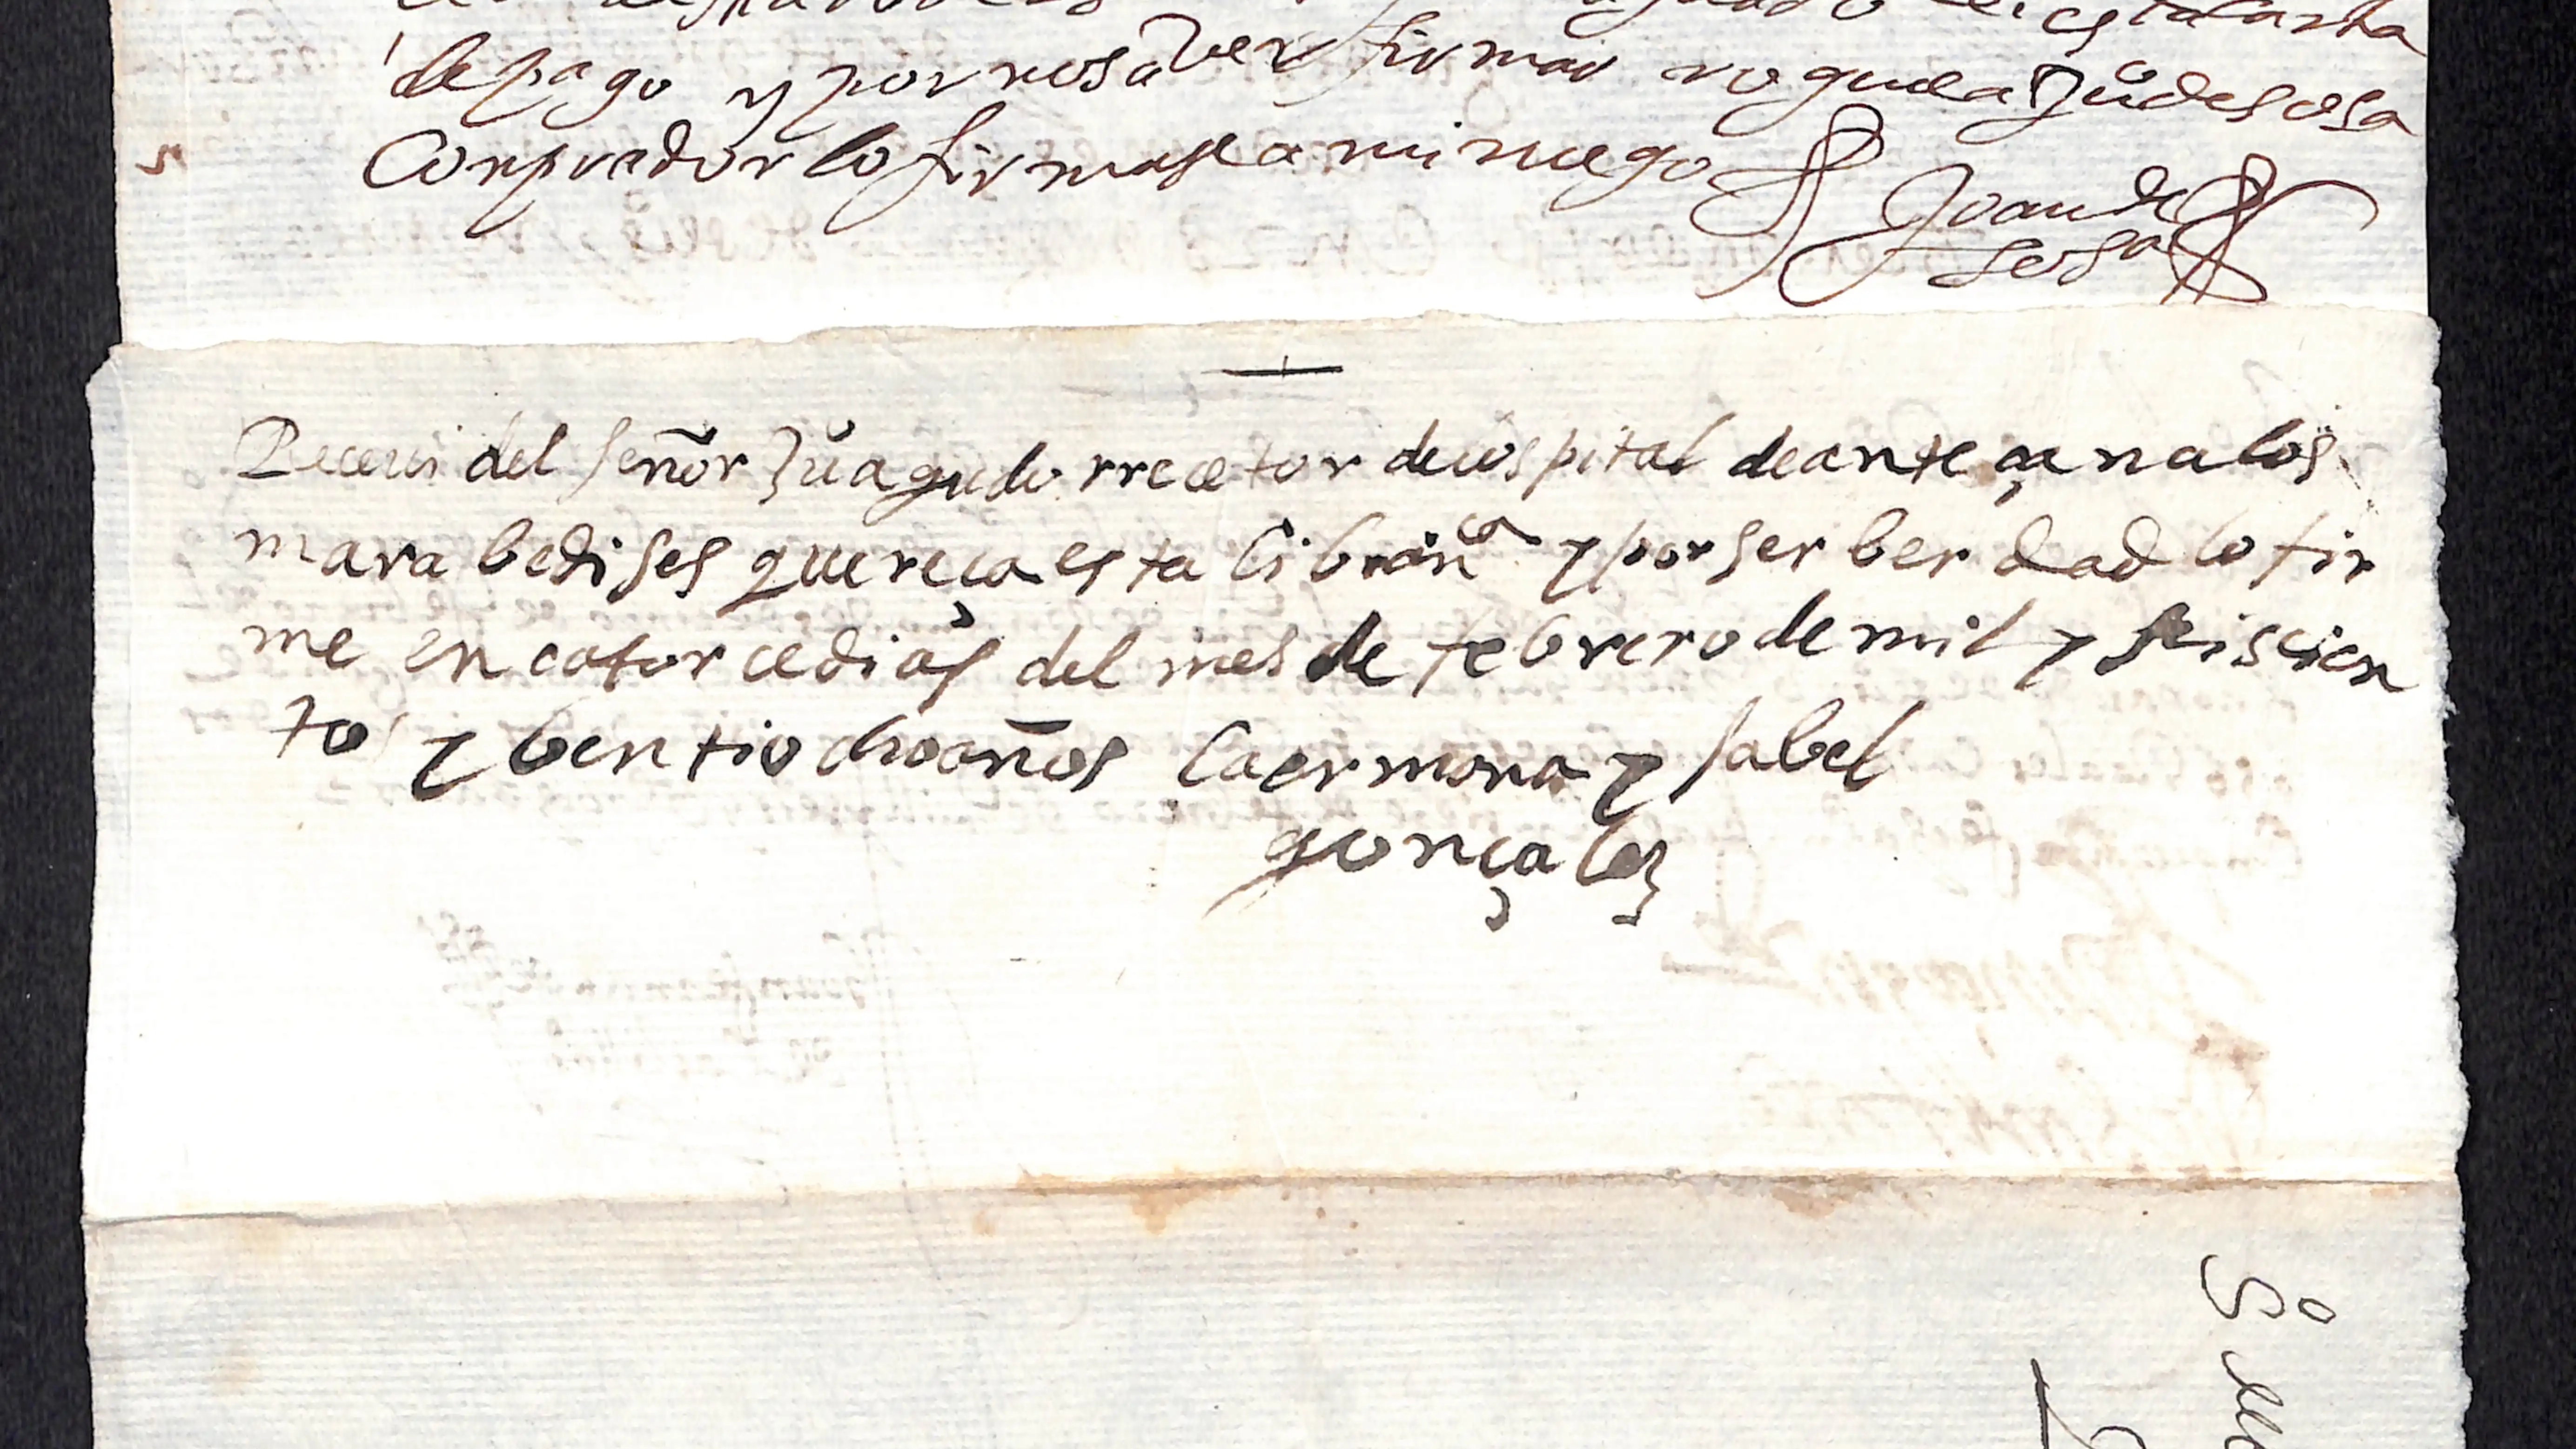 esta carta
de pago y por no saver firmar rogue a Juº de sosa
Conprador lo firmase a mi ruego
Joan de
sosa
Receui del señor Juº agudo rrecetor deuospital de anteçana los
marabedises que reça esta librança y por ser berdad lo fir
me en catorce dias del mes de febrero de mil y seiscien
tos y bentiocho años la ermana ysabel
gonçalez